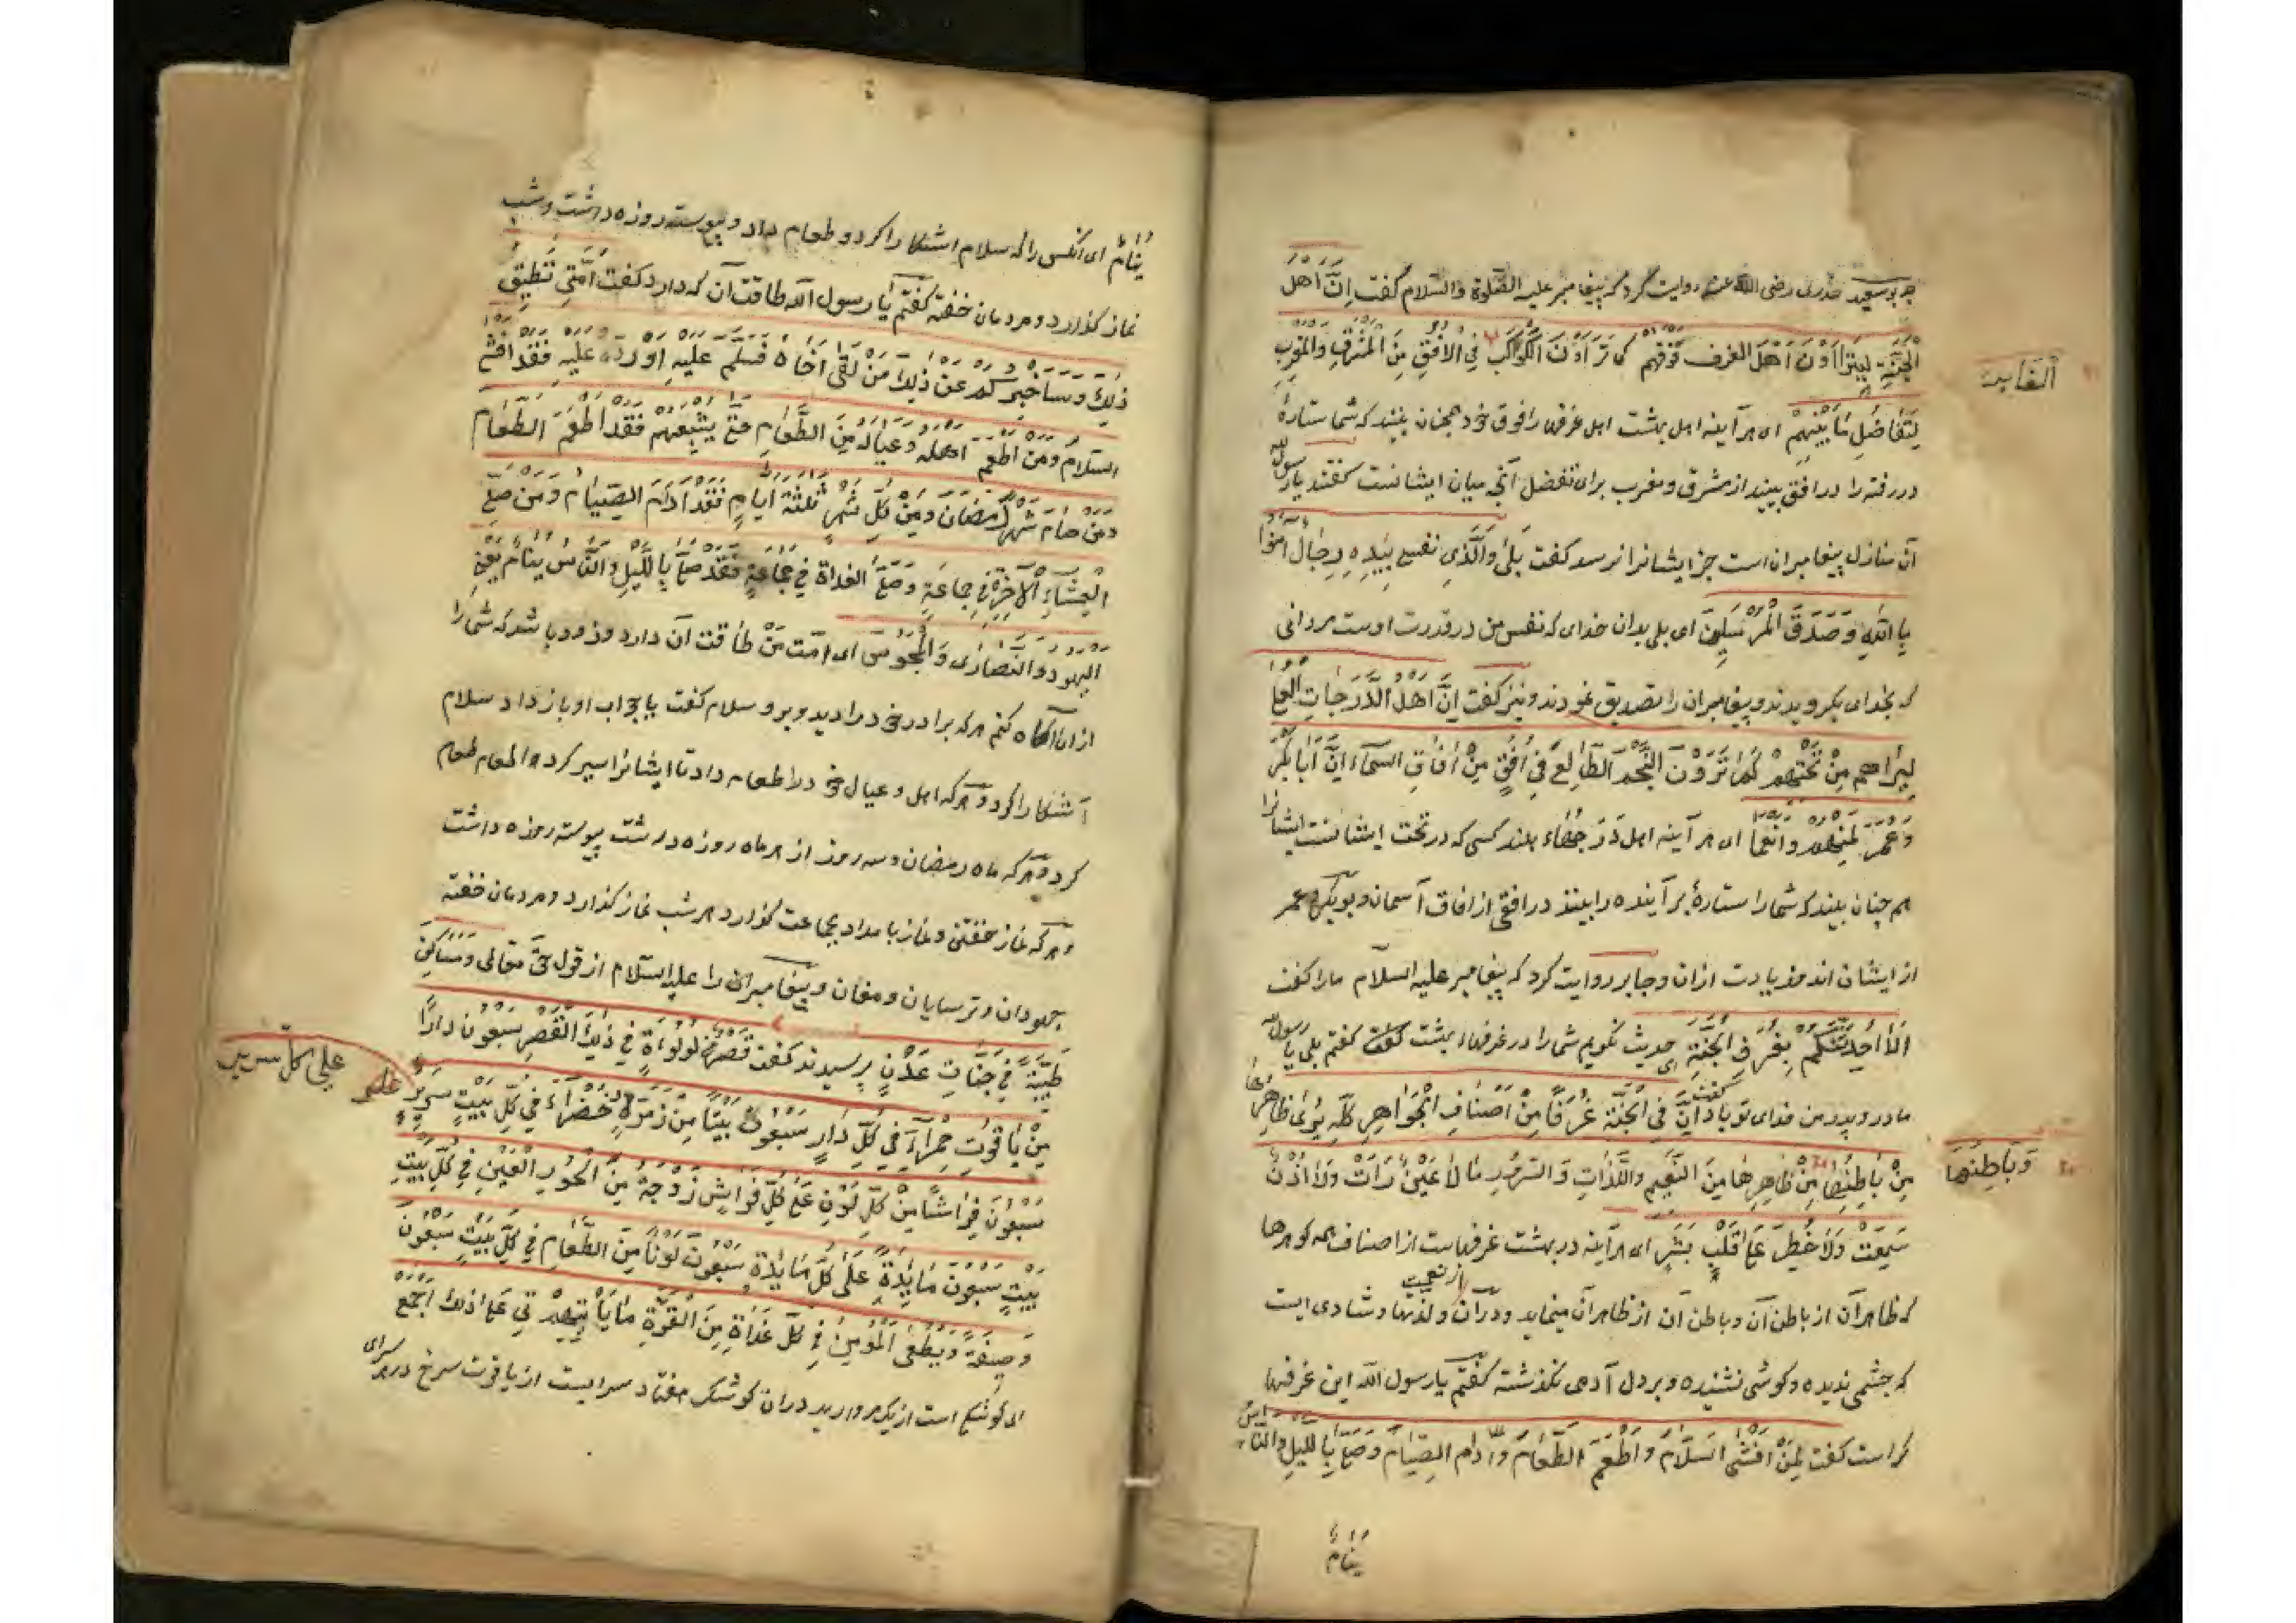 بوسعید خدری رضی الله عنه روایت کرد که پیغامبر علیه الصلوة والسلام گفت اِنَّ اَهْلَ
الْجَنَّةِ لَیَتَرَاءَوْنَ اَهْلَ الغرف فَوْقَهُم کما تَرَاءَوْنَ الْکَوْاکَبَ فِی الْاُفُقِ مِنَ الْمَشْرِقِ وَالْمَغْرِبِ
الغابر
لِتَفَاضُلِ مَا بَیْنَهُمْ ای هر آینه اهل بهشت اهل غرفها را فوق خود همچنان بینند که شما ستارۀ
در رفته را در افق بینید از مشرق و مغرب برای تفضل آنچه میان ایشانست گفتند یا رسول الله
آن منازل پیغامبران است جز ایشانرا نرسد گفت بَلٰی وَالَّذِی نفسی بِیَدِهِ رِجَال امَنُوا
بِاللّٰهِ وَصَدَّقَ الْمُرْسَلِینَ ای بلی بدان خدای که نفس من در قدرت اوست مردانی
که بخدای بگرویدند و پیغامبران را تصدیق نمودند و نیز گفت اِنَّ اَهْلَ الدَّرَجَاتِ الْعُلٰی
لَیَرَاهم مِنْ تَحْتهمْ کَمَا تَرَوْنَ النَّجْمَ الطَّالِعَ فِی اُفُقٍ مِنْ اٰفَاقِ السَّمَآءِ اِنَّ اَبَا بَکْرٍ
وَعُمَرَ لَمِنْهم وَانعما ای هر آینه اهل درجهاء بلند کسی که در تحت ایشانست ایشانرا
هم چنان بیند که شما ستارۀ برآینده را بینند در افقی از افاق آسمان و بوبکر و عمر
از ایشان اند و زیادت ازان و جابر روایت کرد که پیغامبر علیه السلام ما را گفت
اَلَا اُحَدِّثُکُمْ بِغُرَفِ الْجَنَّةِ ای حدیث نگویم شما را در غرفهاء بهشت گفت گفتم بلی یا رسول الله
مادر و پدر من فدای تو باد گفت اِنَّ فِی الْجَنَّة غُرَفًا مِنْ اَصْنَافِ الْجَوَاهِرِ کُلِّهِ یُرٰی ظَاهِرُهَا
مِنْ بَاطِنِهَا مِنْ ظَاهِرِهَا مِنَ النَّعِیمِ وَاللَّذَّاتِ وَالسُّرُورِ مَا لَا عَیْنٌ رَاَتْ وَلَا اُذُنٌ
وَبَاطِنُهَا
سَمِعَتْ وَلَا خَطَرَ عَلٰی قَلْبِ بَشَرٍ ای هر آینه در بهشت غرفهاست از اصناف همه گوهرها
که ظاهر آن از باطن آن و باطن آن از ظاهر آن مینماید و در آن از نعمت و لذتها و شادی است
که چشمی ندیده و گوشی نشنیده و بر دل آدمی نگذشته گفتم یا رسول الله این غرفها
کراست گفت لِمَنْ اَفْشَی السَّلَامَ وَاَطْعَمَ الطَّعَامَ وَاَدَامَ الصِّیَامَ وَصَلّٰی بِاللَّیْلِ وَالنَّاسُ
یَنَامُ
یَنَامُ ای آنکس را که سلام اشکارا کرد و طعام داد و پیوسته روزه داشت و شب
نماز گذارد و مردمان خفته گفتم یا رسول الله طاقت آن که دارد گفت اُمَّتِی تُطِیقُ
ذٰلِکَ وَسَاُخْبِرُکُمْ عَنْ ذٰلِکَ مَنْ لَقِیَ اَخَاهُ فَسَلَّمَ عَلَیْهِ اَوْ رَدَّ عَلَیْهِ فَقَدْ اَفْشَی
السَّلَامَ وَمَنْ اَطْعَمَ اَهْلَهُ وَعِیَالَهُ مِنَ الطَّعَامِ حَتّٰی یُشْبِعَهُمْ فَقَدْ اَطْعَمَ الطَّعَامَ
وَمَنْ صَامَ شَهْرَ رَمَضَانَ وَمِنْ کُلِّ شَهْرٍ ثَلٰثَةَ اَیَّامٍ فَقَدْ اَدَامَ الصِّیَامَ وَمَنْ صَلَّی
الْعِشَاءِ الْاٰخِرَةَ فِی جَمَاعَةٍ وَصَلَّی الْغَدَاةَ فِی جَمَاعَةٍ فَقَدْ صَلّٰی بِاللَّیْلِ وَالنَّاسُ یَنَامُ یَعْنِی
الْیَهُودَ وَالنَّصَارٰی وَالْمَجُوسَ ای امت من طاقت آن دارد و زود باشد که شما را
ازان آگاه کنم هر که برادر خود را دید و برو سلام گفت یا جواب او باز داد سلام
آشکارا کرد و هر که اهل و عیال خود را طعام داد تا ایشانرا سیر کرد اطعام طعام
کرد و هر که ماه رمضان و سه روز از هر ماه روزه داشت پیوسته روزه داشت
و هر که نماز خفتن و نماز بامداد بجماعت گذارد هر شب نماز گذارد و مردمان خفته
جهودان و ترسایان و مغان و پیغامبر را علیه السلام از قول حق تعالی وَمَسَاکِنَ
طَیِّبَةً فِی جَنَّاتِ عَدْنٍ پرسیدند گفت قَصْرٌ مِنْ لُؤْلُؤَةٍ فِی ذٰلِکَ الْقَصْرِ سَبْعُونَ دَارًا
مِنْ یَاقُوتٍ حَمْرَآءَ فِی کُلِّ دَارٍ سَبْعُونَ بَیْتًا مِنْ زُمُرُّدٍ خَضْرَآءَ فِی کُلِّ بَیْتٍ سَرِیرٌ
علی کل سریر
سَبْعُونَ فِرَاشًا مِنْ کُلِّ لَوْنٍ عَلٰی کُلِّ فِرَاشٍ زَوْجَةٌ مِنَ الْحُورِ الْعِینِ فِی کُلِّ بَیْتٍ
بَیْتٍ سَبْعُونَ مَائِدَةً عَلٰی کُلِّ مَائِدَةٍ سَبْعُونَ لَوْنًا مِنَ الطَّعَامِ فِی کُلِّ بَیْتٍ سَبْعُونَ
وَصِیفَةً وَیُعْطَی الْمُؤْمِنُ فِی کُلِّ غَدَاةٍ مِنَ الْقُوَّةِ مَا یَاْتِی عَلٰی ذٰلِکَ اَجْمَعَ
ای کوشکی است از یک مروارید دران کوشک هفتاد سرایست از یاقوت سرخ در هر سرای